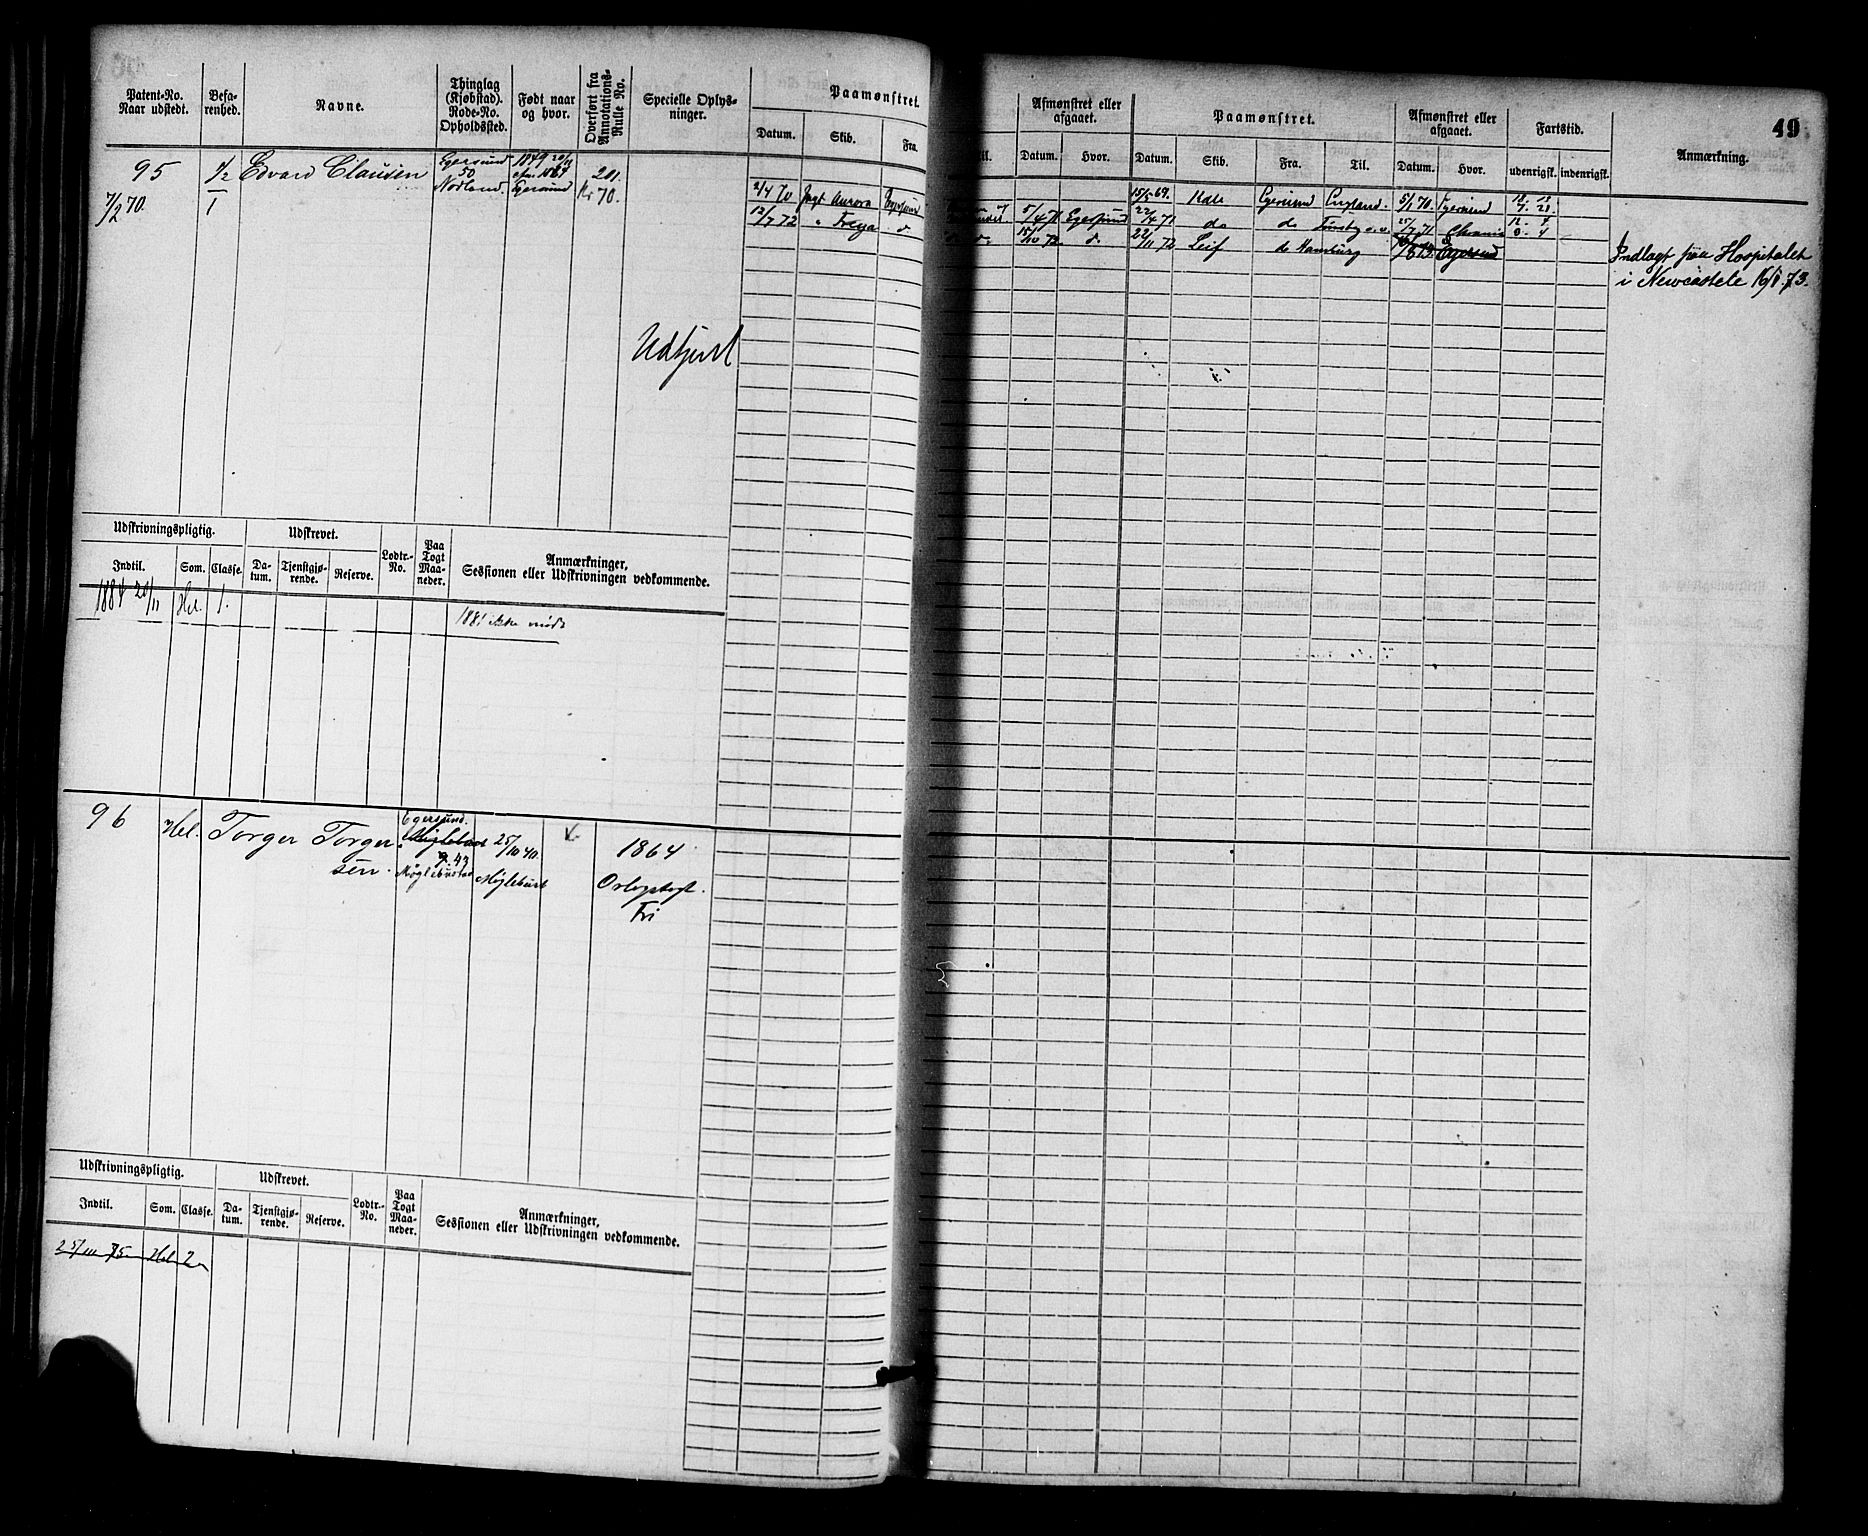 49
Patent-No. Naar udstedt.
Befa-renhed.
Navne.
Thinglag (Kjøbstad). Rode-No. Opholdssted.
Født naar og hvor.
Overført fra Annotations-Rulle No.
Specielle Oplys-ninger.
Paamønstret.
Datum. Skib. Fra.
Til.
Afmønstret eller afgaaet.
Datum. Hvor.
Paamønstret.
Datum. Skib. Fra. Til.
Afmønstret eller afgaaet.
Datum. Hvor.
Fartstid.
udenrigsk. indenrigsk.
Anmærkning.
95
7/2 70.
1/2
1
Edvard Clausen
Egersund
50
Nodland
1849 20/11
Egersund
201.
70.
Udført
2/4 70 Jagt Aurora
12/7 72 " Freya d
5/4 71 Egersund
15/10 72 d.
15/5 69. Kale Egersund England.
22/4 71 do do
22/11 72 Leif do Hamburg
5/1 70. Egersund
25/7 71
Egersund
Indlagt paa Hospitalet
i Newcastele 16/1.73.
Udskrivningspligtig.
Udskrevet.
Indtil. Som. Classe. Da-tum. Tjenstgjø-rende. Reserve.
Lodtr.-No.
Paa Togt Maa-neder.
Anmærkninger,
Sessionen eller Udskrivningen vedkommende.
1884 20/11 Hel. 1.
1881 ikke mødt
96
Hel.
Torger Torger
sen.
Egersund.
Møglebust
43
25/10 40.
Møglebust
1864
Orlogstogt.
Fri
Udskrivningspligtig.
Udskrevet.
Indtil. Som. Classe. Da-tum. Tjenstgjø-rende. Reserve.
Lodtr.-No.
Paa Togt Maa-neder.
Anmærkninger,
Sessionen eller Udskrivningen vedkommende.
25/10 75 Hel 2